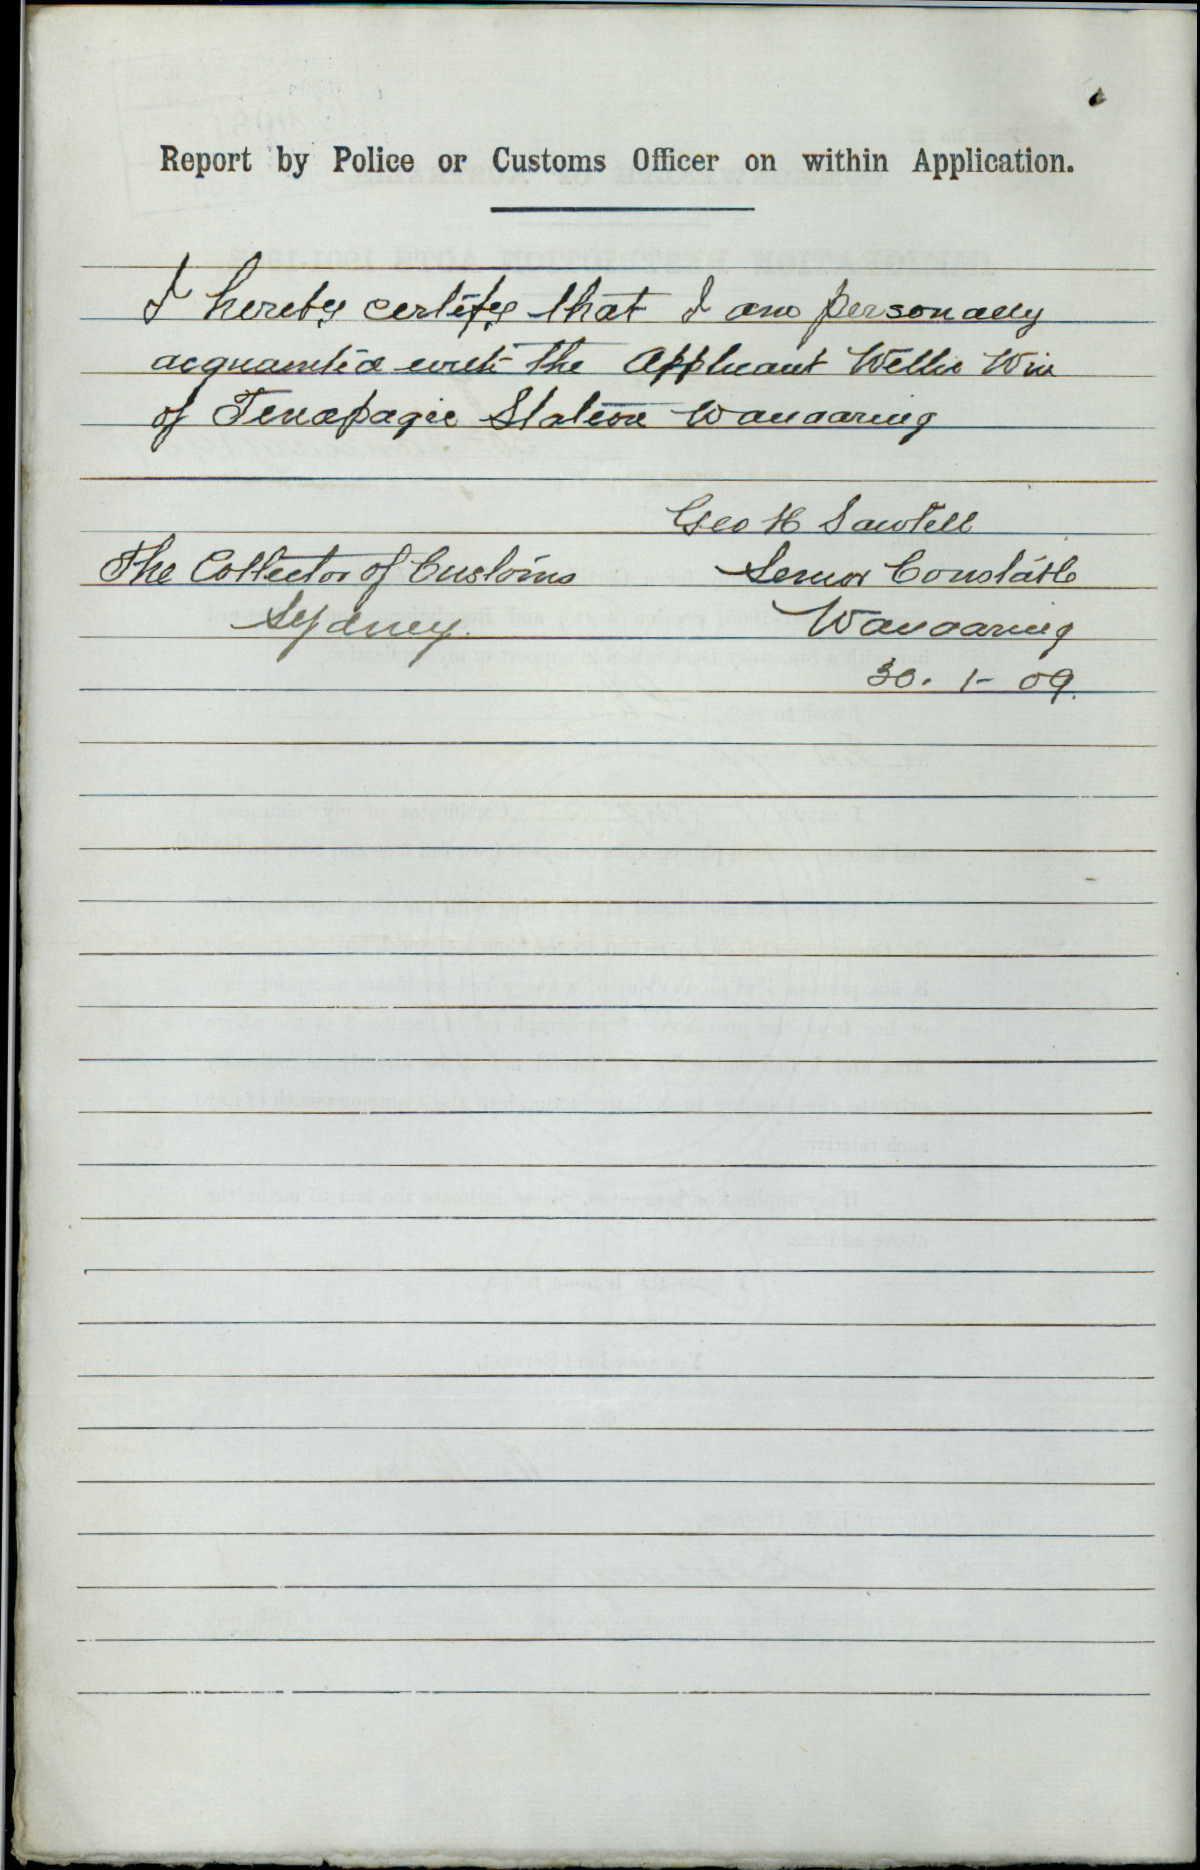 Report by Police or Customs Officer on within Application.
I hereby certify that I am personally
acquainted with the Applicant Willie Win
of Tenapagie Station Wanaaring
Geo H Sawtell
The Collector of Customs Senior Constable
Sydney. Wanaaring
30. 1- 09.